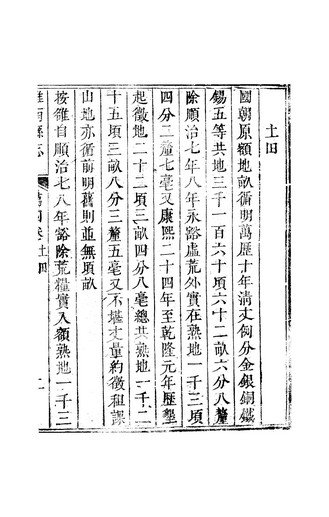 土田
國朝原額地畝循明萬歷十年清丈例分金銀銅鐵
錫五等共地三千一百六十頃六十二畝六分八釐
除順治七年八年永豁虛荒外實在熟地一千三頃
四分三釐七毫又康熙二十四年至乾隆元年歷墾
起徵地二十二頃三畝四分八毫總共熟地一千二
十五頃三畝八分三釐五毫又不堪丈量約徵租課
山地亦循前明舊則並無頃畝
按雒自順治七八年豁除荒糧實入額熟地一千三
雒南縣志
卷四 土田